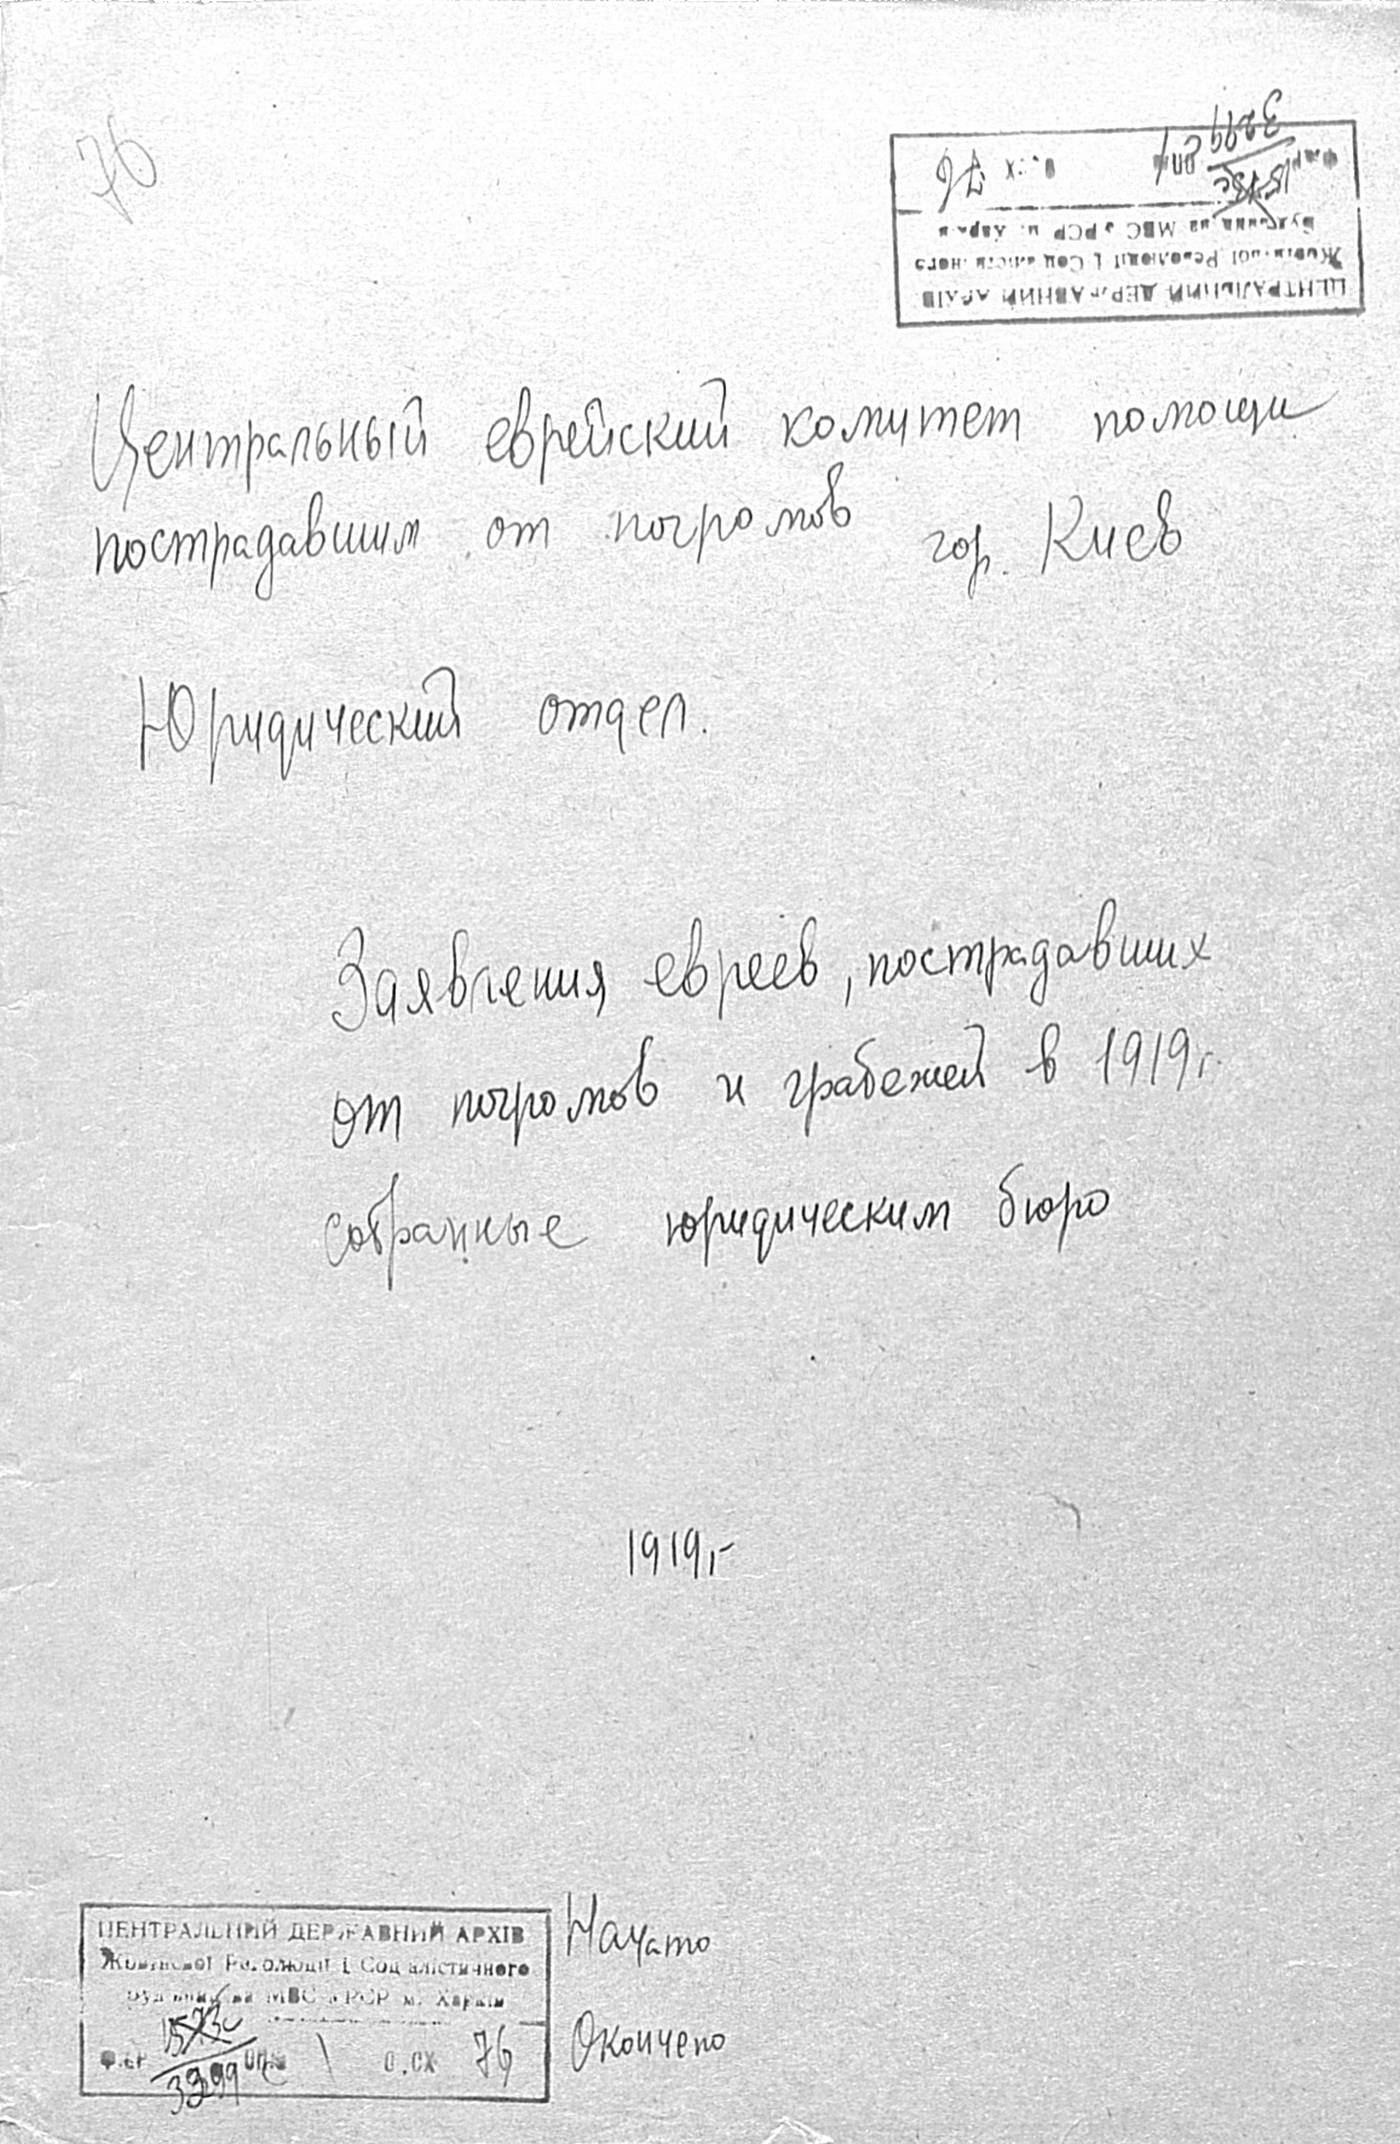 76
ЦЕНТРАЛЬНИЙ ДЕРЖАВНИЙ АРХІВ
Жовтневої Революції і Соціалістичного
Будівництва МВС УРСР м. Харків
Фонд 1573с 3299 оп. 1 о.сх 76
Центральный еврейский комитет помощи
пострадавшим от погромов гор. Киев
Юридический отдел.
Заявления евреев, пострадавших
от погромов и грабежей в 1919 г.
собранные юридическим бюро
1919 г.
ЦЕНТРАЛЬНИЙ ДЕРЖАВНИЙ АРХІВ
Жовтневої Революції і Соціалістичного
Будівництва МВС УРСР м. Харків
1573с
3299 1 О.СХ 76
Начато
Окончено